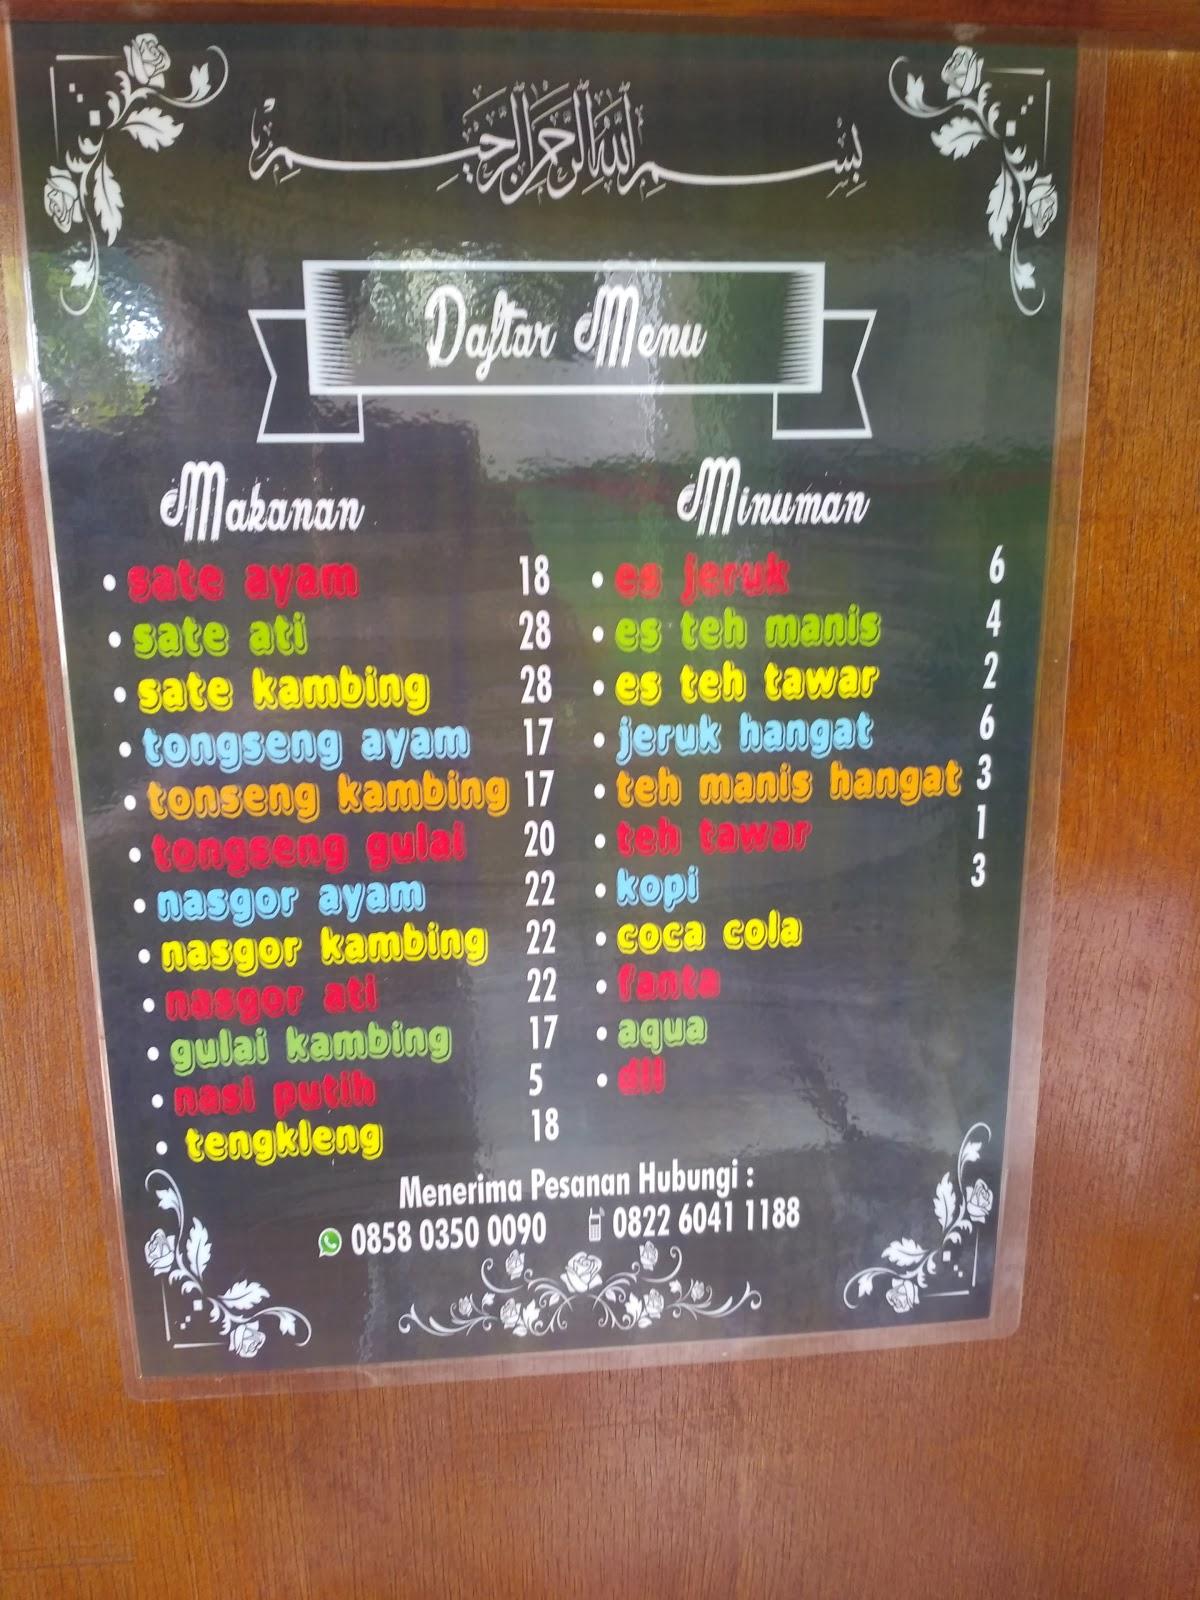 بِسْمِ اللَّهِ الرَّحْمَٰنِ الرَّحِيمِ
Daftar Menu
Makanan
• sate ayam 18
• sate ati 28
• sate kambing 28
• tongseng ayam 17
• tonseng kambing 17
• tongseng gulai 20
• nasgor ayam 22
• nasgor kambing 22
• nasgor ati 22
• gulai kambing 17
• nasi putih 5
• tengkleng 18
Minuman
• es jeruk 6
• es teh manis 4
• es teh tawar 2
• jeruk hangat 6
• teh manis hangat 3
• teh tawar 1
• kopi 3
• coca cola
• fanta
• aqua
• dll
Menerima Pesanan Hubungi :
0858 0350 0090 0822 6041 1188